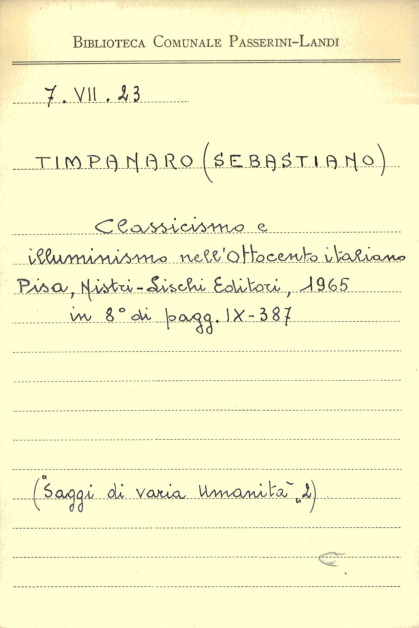 BIBLIOTECA COMUNALE PASSERINI-LANDI
7. VII. 23
TIMPANARO (SEBASTIANO)
Classicismo e
illuminismo nell'Ottocento italiano
Pisa, Nistri-Lischi Editori, 1965
in 8° di pagg. IX-387
("Saggi di varia Umanità" „2)
C